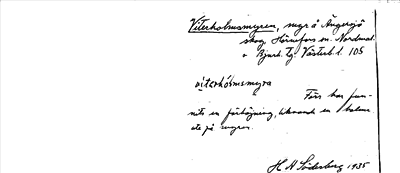 Viterholmsmyren, myr å Ångersjö
skog Hörnefors sn. Nordmal.
o Bjurh. tg. Västerb. l. 105
viterhólmsmyra
Förr har fun-
nits en förhöjning, liknande en holme
ute på myren.
H N Söderberg 1935